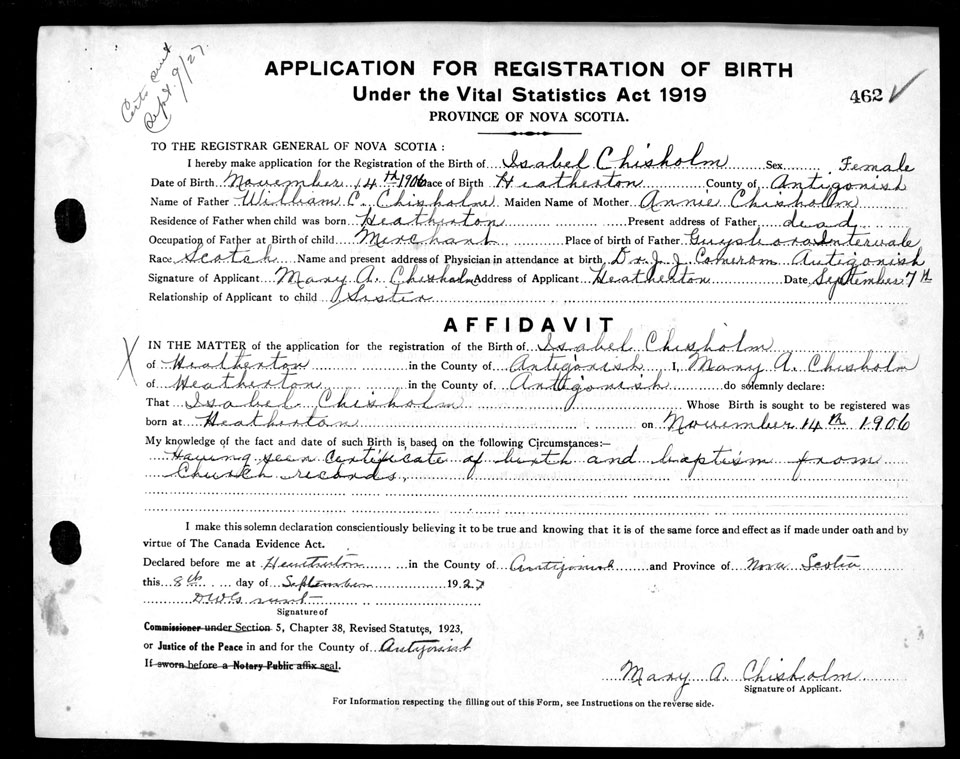 Certs sent
Sept. 9/27.
APPLICATION FOR REGISTRATION OF BIRTH
Under the Vital Statistics Act 1919
462
PROVINCE OF NOVA SCOTIA.
TO THE REGISTRAR GENERAL OF NOVA SCOTIA :
I hereby make application for the Registration of the Birth of Isabel Chisholm Sex Female
Date of Birth November 14th 1906 Place of Birth Heatherton County of Antigonish
Name of Father William C. Chisholm Maiden Name of Mother Annie Chisholm
Residence of Father when child was born Heatherton Present address of Father dead
Occupation of Father at Birth of child Merchant Place of birth of Father Guysboro Intervale
Race Scotch Name and present address of Physician in attendance at birth Dr. J. J. Cameron Antigonish
Signature of Applicant Mary A. Chisholm Address of Applicant Heatherton Date September 7th
Relationship of Applicant to child Sister
AFFIDAVIT
X IN THE MATTER of the application for the registration of the Birth of Isabel Chisholm
of Heatherton in the County of Antigonish I, Mary A. Chisholm
of Heatherton in the County of Antigonish do solemnly declare:
That Isabel Chisholm Whose Birth is sought to be registered was
born at Heatherton on November 14th 1906
My knowledge of the fact and date of such Birth is based on the following Circumstances:—
Having seen certificate of birth and baptism from
Church records.
I make this solemn declaration conscientiously believing it to be true and knowing that it is of the same force and effect as if made under oath and by
virtue of The Canada Evidence Act.
Declared before me at Heatherton in the County of Antigonish and Province of Nova Scotia
this 8th day of September 1927
Signature of
Commissioner under Section 5, Chapter 38, Revised Statutes, 1923,
or Justice of the Peace in and for the County of Antigonish
If sworn before a Notary Public affix seal.
Mary A. Chisholm
Signature of Applicant.
For Information respecting the filling out of this Form, see Instructions on the reverse side.